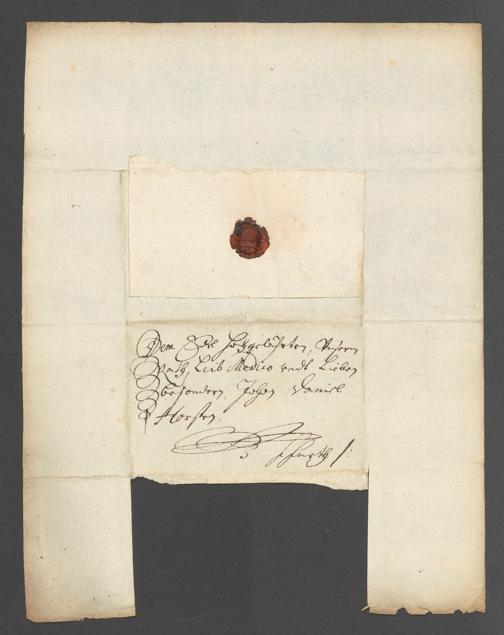 Dem Edel Hochgelährten, Unsern
Rath, Leib Medico undt Lieben
Besondern, Johan Daniel
Horsten.